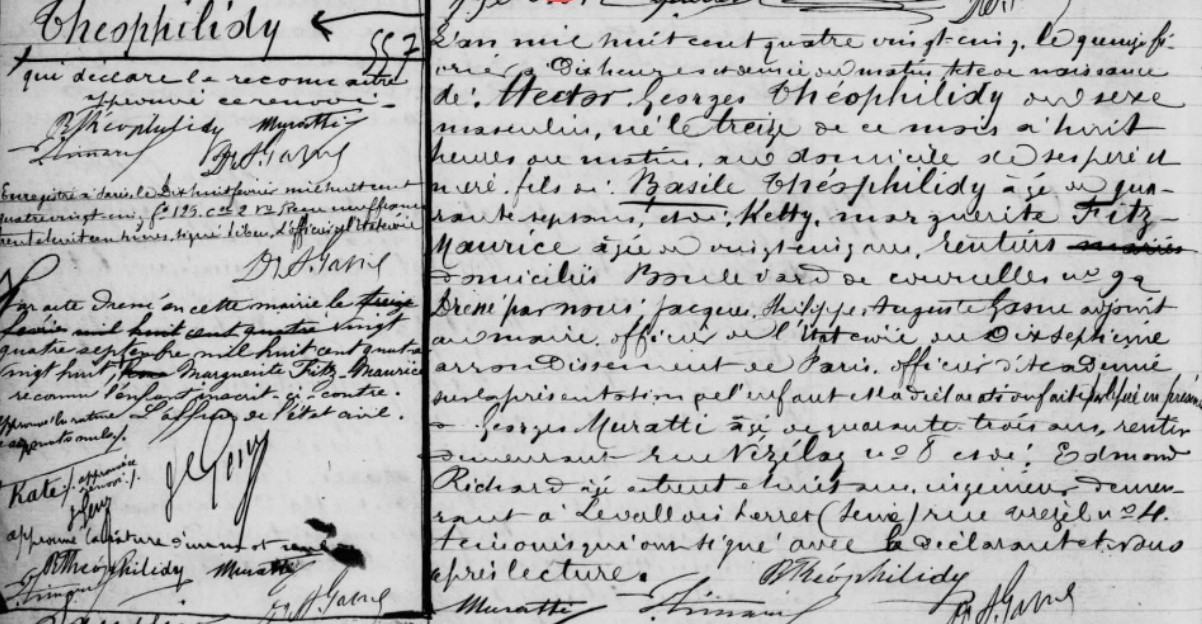 Théophilidy
557
qui déclare le reconnaitre
approuvé ce renvoi -
BThéophilidy Muratti
Dr A. Gasne
Enregistré à Paris, le Dix huit février mil huit cent
quatre vingt-cinq, f° 125. c. 2
Dr A. Gasne
Par acte dressé en cette mairie le treize
février mil huit cent quatre vingt
quatre septembre mil huit cent quatre
vingt huit, Marguerite Fitz-Maurice
reconnu l'enfant inscrit ci-contre.
L'officier de l'état civil.
Kate /. approuvé
renvoi /.
approuvé la rature d'un mot
BThéophilidy Muratti
Dr A. Gasne
L'an mil huit cent quatre vingt-cinq, le quinze fé-
vrier à Dix heures et demie du matin, acte de naissance
de: Hector Georges Théophilidy du sexe
masculin, né le treize de ce mois à huit
heures du matin, au domicile de ses père et
mère, fils de: Basile Théophilidy âgé de qua-
rante sept ans, et de: Ketty, marguerite Fitz-
Maurice âgée de vingt cinq ans, rentiers mariés
domiciliés Boulevard de courcelles n° 92
Dressé par nous, Jacques, Philippe, Auguste Gasne adjoint
au maire, officier de l'état civil du Dixseptième
arrondissement de Paris, officier d'Académie
sur la présentation de l'enfant et la déclaration faite par le père en présence
de Georges Muratti âgé de quarante trois ans, rentier
demeurant rue Vézelay n° 8 et de: Edmond
Richard âgé de trente et huit ans, ingénieur demeu-
rant à Levallois Perret (Seine) rue n° 4.
témoins qui ont signé avec le déclarant et nous
après lecture.
BThéophilidy
Muratti Dr A. Gasne